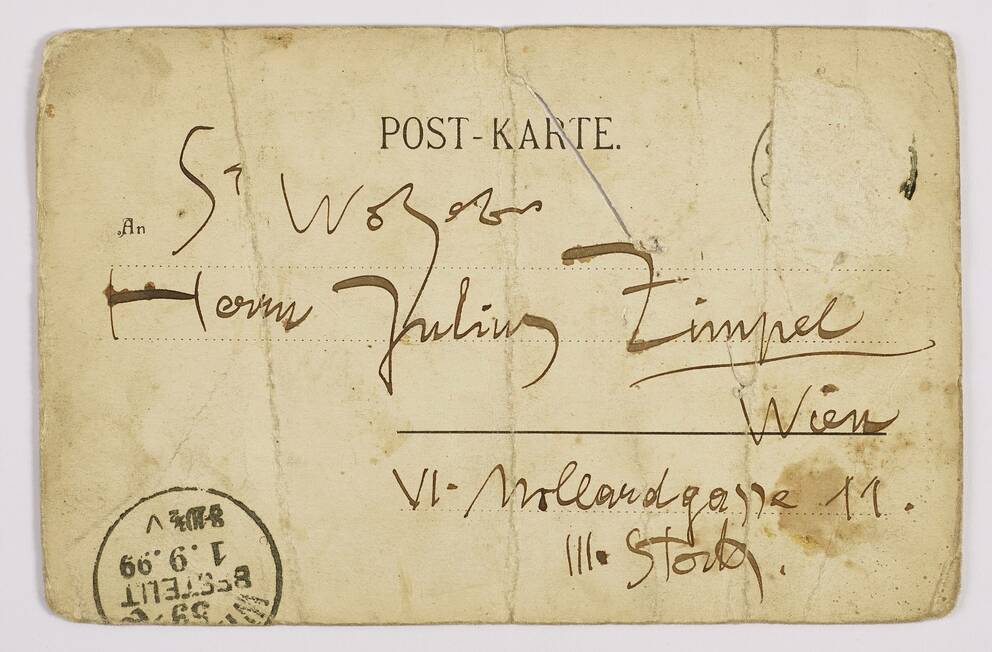 POST-KARTE.
An
Sr Wolgeborn
Herrn Julius Zimpel
Wien
VI. Mollardgasse 11.
III. Stock.
BESTELLT
1.9.99